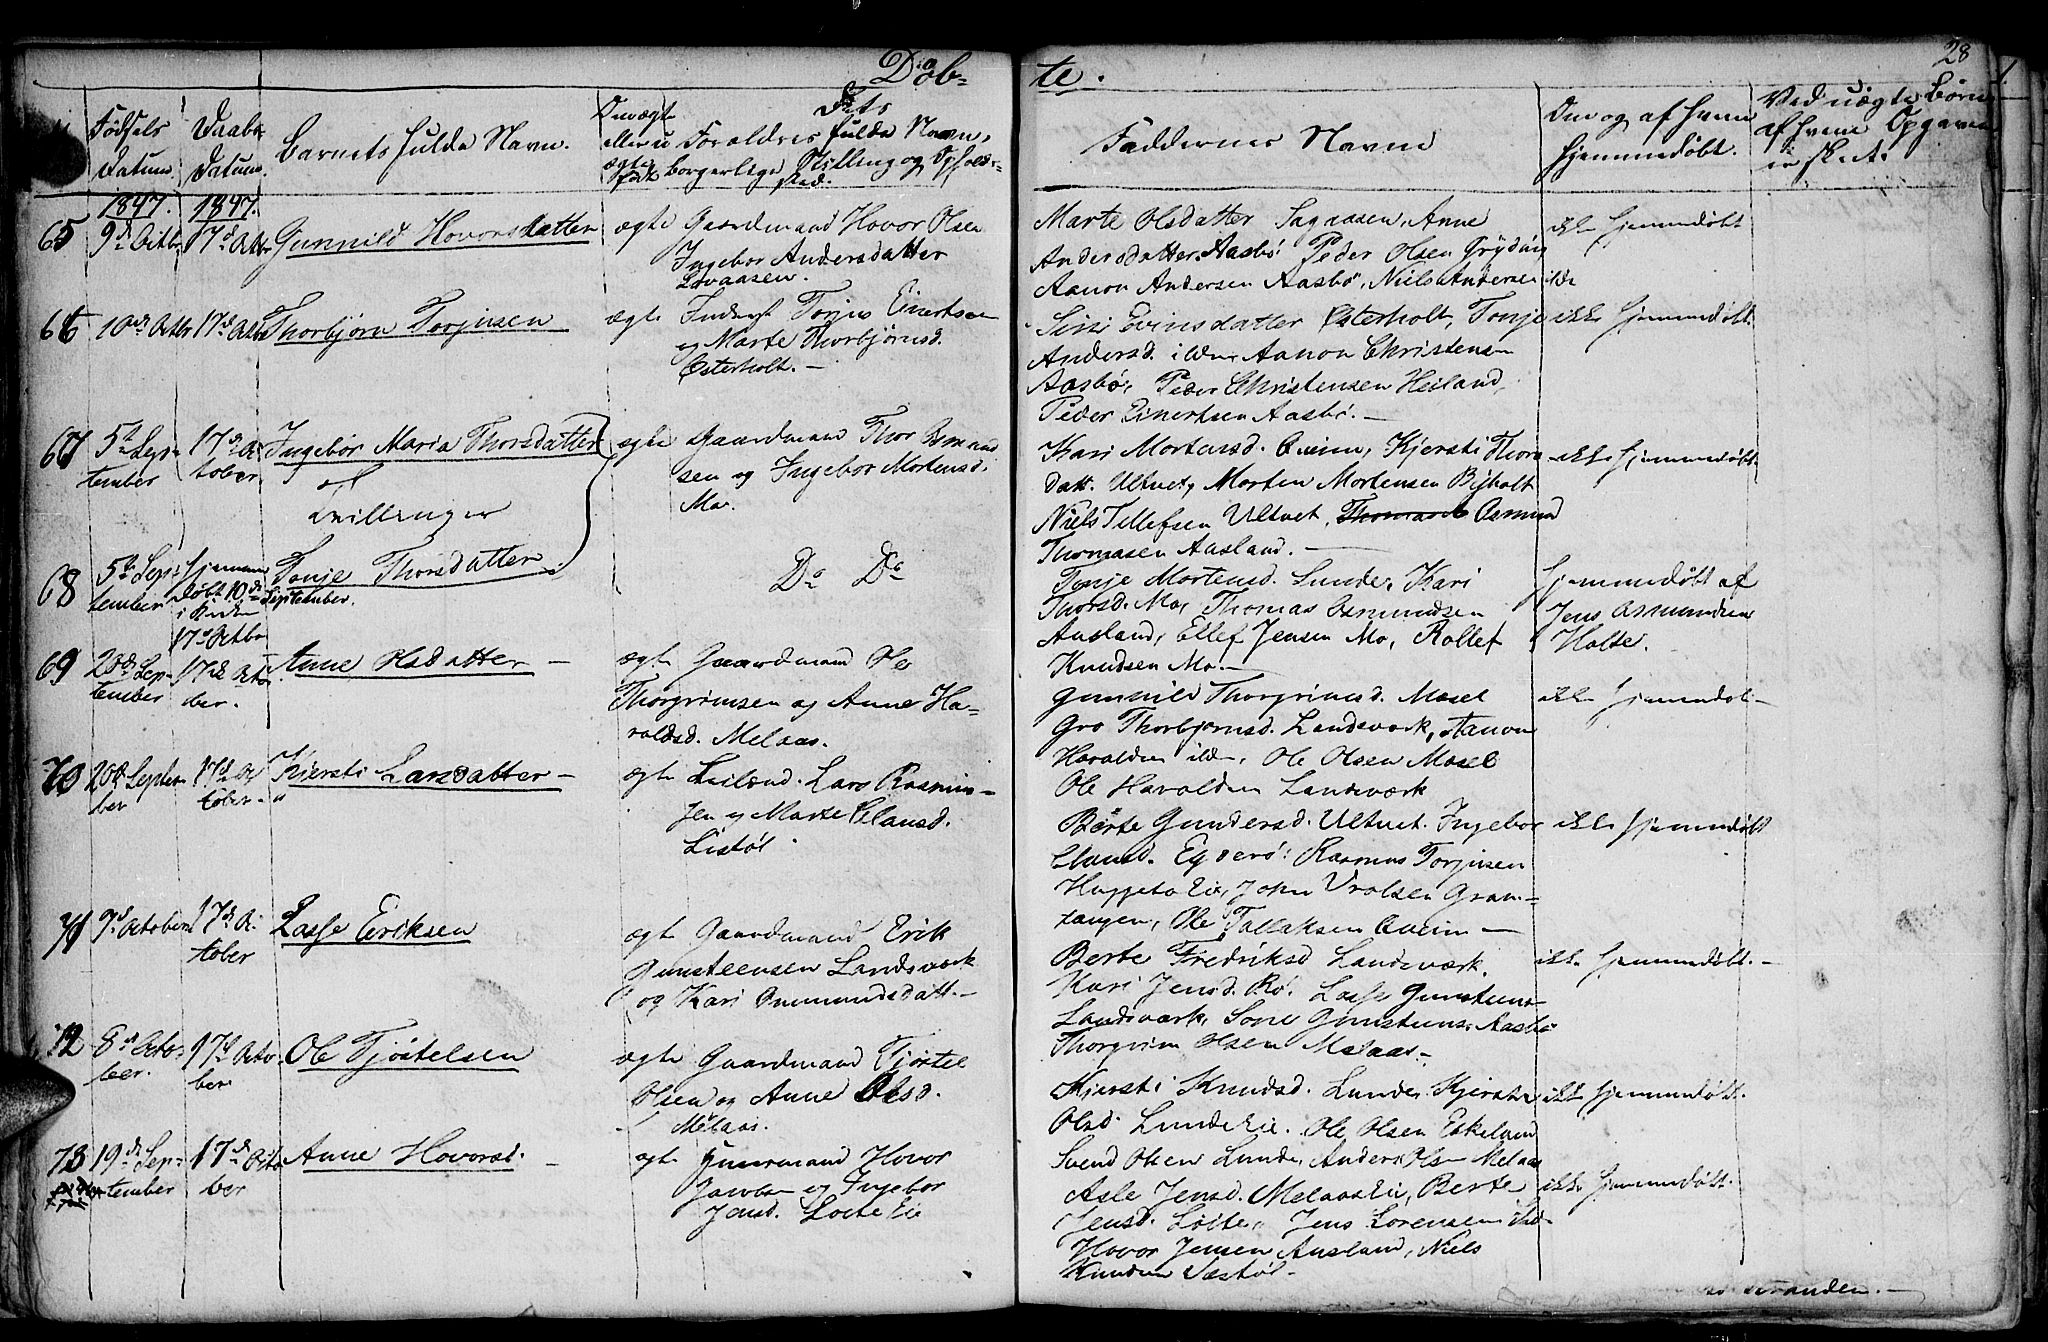 Døb-
te.
28
Fødsels Datum
Daabs Datum
Barnets fulde Navn.
Om ægte eller u ægte født
Forældres fulde Navn, borgerlige Stilling og Opholds-sted.
Faddernes Navne
Om og af hvem hjemmedøbt.
Ved uægte Børn af hvem Opgaven er skeet.
1847. 1847.
65 9d Octbr 17d Octbr Gunnild Hovorsdatter ægte Gaardmand Hovor Olsen
Ingebor Andersdatter
Lovaasen.
Marte Olsdatter Sagaasen, Anne
Andersdatter Aasbø Peder Olsen
Aanon Andersen Aasbø, Niels Andersen ibd
ikke hjemmedøbt
66 10de Octbr 17d Octbr Thorbjørn Torjusen ægte Inderst Torjus Einertsen
og Marte Thorbjørnsd.
Østerholt. —
Siri Evinsdatter Østerholt, Tonje
Andersd. ibd, Aanon Christensen
Aasbø, Peder Christensen Heiland,
Peder Einertsen Aasbø. —
ikke hjemmedøbt.
67 5t Sep-
tember
17d Oc
tober
Ingebor Maria Thorsdatter
Tvillinger
ægte Gaardmand Thor Osmund
sen og Ingebor Mortensd.
Mo.
Kari Mortensd. Qveim, Kjersti Thors
datt. Ultvet, Morten Mortensen Bijholt
Niels Tellefsen Ultvet, Thomas Osmund
Thomasen Aasland. —
ikke hjemmedøbt
68 5te Sep-
tember
hjemme
døbt 10de September.
i Kirken
17d Octbr
Tonje Thorsdatter
Do Do
Tonje Mortensd. Lunde, Kari
Thorsd. Mo, Thomas Osmundsen
Aasland, Ellef Jensen Mo, Rollef
Knudsen Mo. —
hjemmedøbt af
Jens Osmundsen
Holte.
69 20de Sep-
tember
17d Octo
ber.
Anne Olsdatter —
ægte Gaardmand Ole
Thorgrimsen og Anne Ha-
roldsd. Melaas.
Gunnild Thorgrimsd. Mosel
Gro Thorbjørnsd. Landsværk, Aanon
Haroldsen ibd, Ole Olsen Mosel
Ole Haroldsen Landsværk
ikke hjemmedøbt
70 20d Septem
ber
17d Oc
tober.
Kjersti Larsdatter —
ægte Leilænd. Lars Rasmus-
sen og Marte Clausd.
Listøl.
Berte Gundersd. Ultvet. Ingebor
Clausd. Egderø: Rasmus Torjusen
Huggeto Eie, John Vrolsen Gram-
tangen, Ole Tallaksen Qveim —
ikke hjemmedøbt
71 9d October 17d Oc
tober
Lasse Eriksen
ægte Gaardmand Erik
Gunsteensen Landsværk
og Kari Ommundsdatt. —
Berte Fredriksd Landsværk.
Kari Jensd. Rø. Lasse Gunsteens-
Landsværk, Sone Gunsteens. Aasbø
Thorgrim Olsen Melaas —
ikke hjemmedøbt. —
72 8d Octo
ber.
17d Octo
ber.
Ole Tjøstelsen
ægte Gaardmand Tjøstel
Olsen og Anne Olsd.
Melaas.
Kjersti Knudsd. Lunde, Kjersti
Olsd. Lunde Eie. Ole Olsen Eskeland
Svend Olsen Lunde, Anders Ols— Melaas
ikke hjemmedøbt.
73 19de Sep-
tember
17de Octo
ber
Anne Hovorsd. —
ægte Huusmand Hovor
Jacobsen og Ingebor
Jensd. Løite Eie
Asle Jensd. Melaas Eie, Berte
Jensd. Løite, Jens Lorensen ibd-
Hovor Jensen Aasland, Niels
Knudsen Væstøl —
ikke hjemmedøbt.